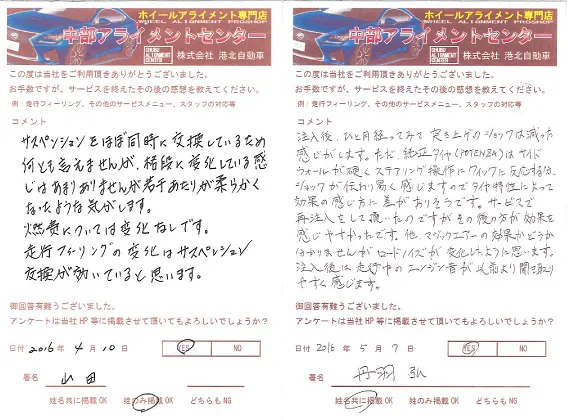 ホイールアライメント専門店
WHEEL ALIGNMENT PROSHOP
中部アライメントセンター
CHUBU ALIGNMENT CENTER
株式会社 港北自動車
この度は当社をご利用頂きありがとうございました。
お手数ですが、サービスを終えたその後の感想を教えてください。
例：走行フィーリング、その他のサービスメニュー、スタッフの対応等
コメント
サスペンションをほぼ同時に交換しているため
何とも言えませんが、格段に変化している感
じはあまりありませんが若干あたりが柔らかく
なったような気がします。
燃費については変化なしです。
走行フィーリングの変化はサスペンション
交換が効いていると思います。
御回答有難うございました。
アンケートは当社HP等に掲載させて頂いてもよろしいでしょうか？
日付 2016 年 4 月 10 日
YES NO
署名 山田
姓名共に掲載OK 姓のみ掲載OK どちらもNG
ホイールアライメント専門店
WHEEL ALIGNMENT PROSHOP
中部アライメントセンター
CHUBU ALIGNMENT CENTER
株式会社 港北自動車
この度は当社をご利用頂きありがとうございました。
お手数ですが、サービスを終えたその後の感想を教えてください。
例：走行フィーリング、その他のサービスメニュー、スタッフの対応等
コメント
注入後、ひと月経ってみて突き上げのショックは減った
感じがします。ただ、純正タイヤ(POTENZA)はサイド
ウォールが硬くステアリング操作にクイックに反応する分、
ショックが伝わり易く感じますのでタイヤ特性によって
効果の感じ方に差がありそうです。サービスで
再注入をして頂いたのですがその後の方が効果を
感じやすかったです。他、マジックエアーの効果かどうか
分かりませんがロードノイズが変化したように思います。
注入後は走行中のエンジン音が以前より聞き取り
やすく感じます。
御回答有難うございました。
アンケートは当社HP等に掲載させて頂いてもよろしいでしょうか？
日付 2016 年 5 月 7 日
YES NO
署名 丹羽 弘
姓名共に掲載OK 姓のみ掲載OK どちらもNG